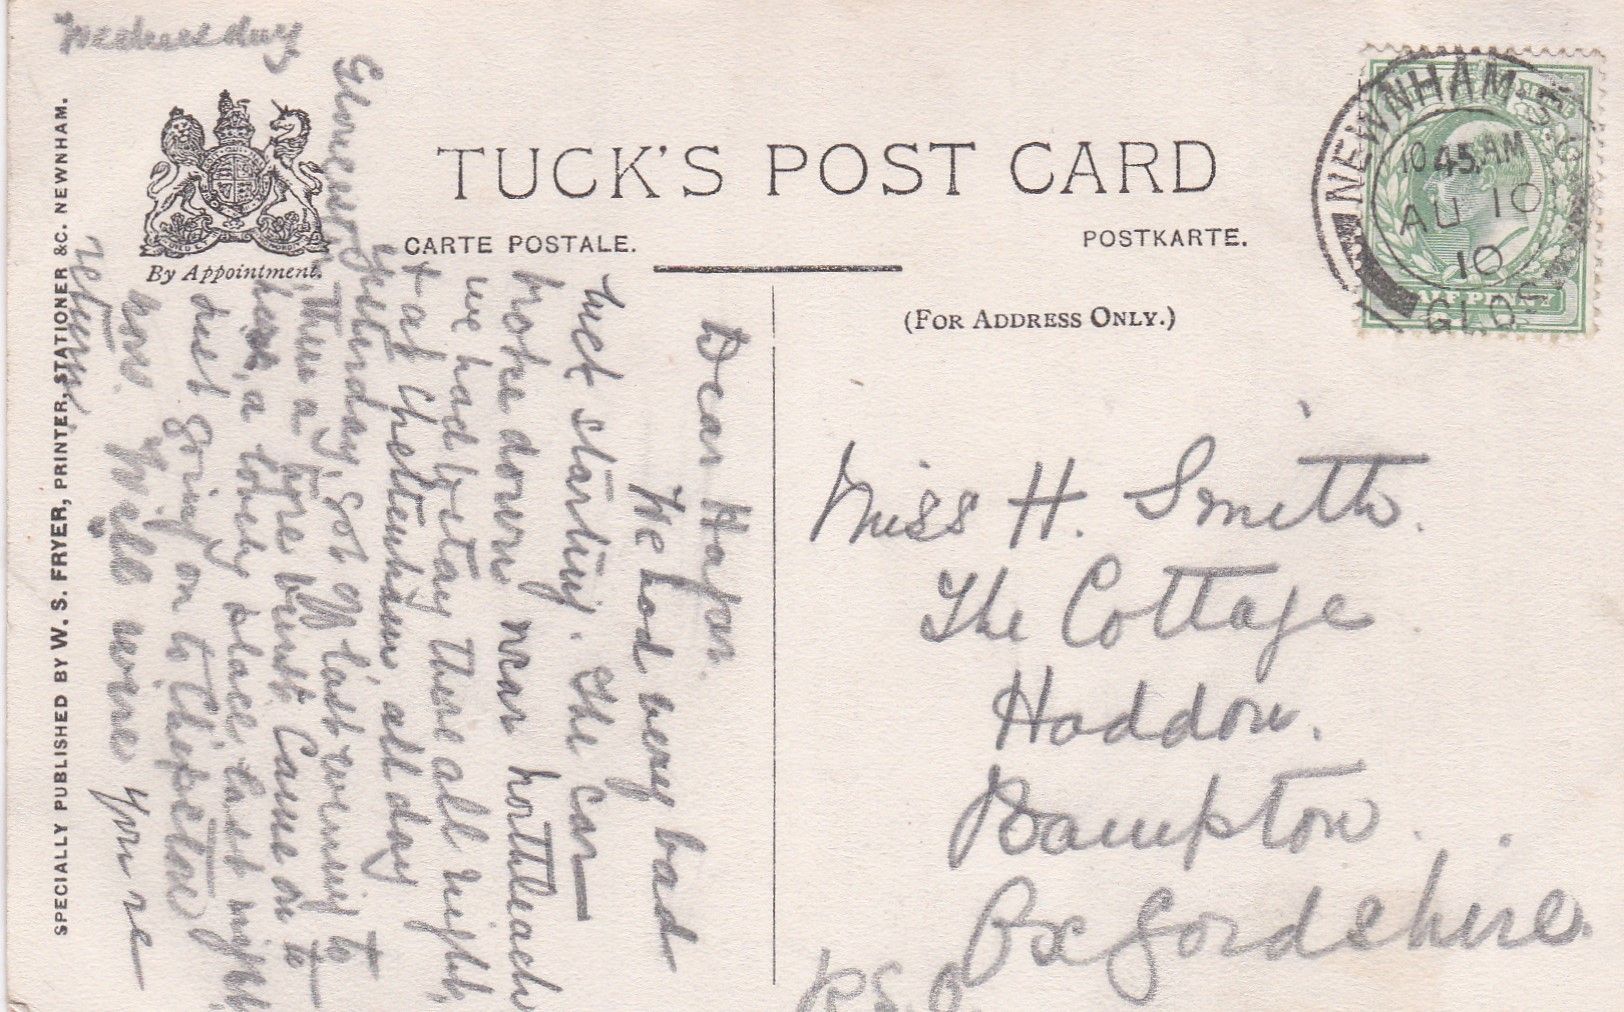 Wednesday
By Appointment.
TUCK'S POST CARD
CARTE POSTALE.
POSTKARTE.
(FOR ADDRESS ONLY.)
NEWNHAM
10.45. AM
AU 10
10
GLOS
SPECIALLY PUBLISHED BY W. S. FRYER, PRINTER, STATIONER &C. NEWNHAM.
Dear
We had very bad
luck starting. The car
broke down near Northleach
we had to stay there all night,
+ at Cheltenham all day
yesterday, got off last evening to
Gloucester, then a tyre burst, Came on to
here, a lovely place, last night
just going on to Chepstow
now. Will wire you re
return.
Miss H. Smith.
The Cottage
Haddon.
Bampton.
Oxfordshire.
R.S.O.